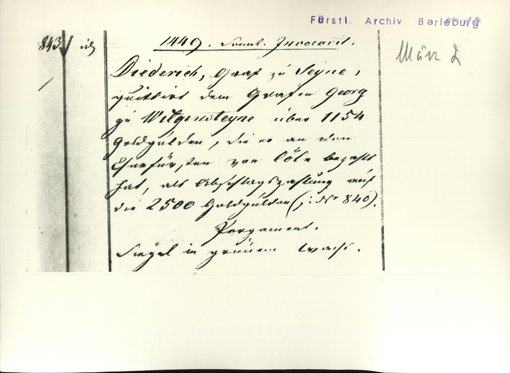 Fürstl. Archiv Berleburg
März 2
843. 1449. Sonnt. Invocavit.
Diederich, Graf zu Seyne,
quittirt dem Grafen Georg
zu Witgensteyne über 1154
Goldgülden, die er an den
Churfürsten von Cöln bezahlt
hat, als Abschlagszahlung auf
die 2500 Goldgülden (s: No 840).
Pergament.
Siegel in grünem Wachs.